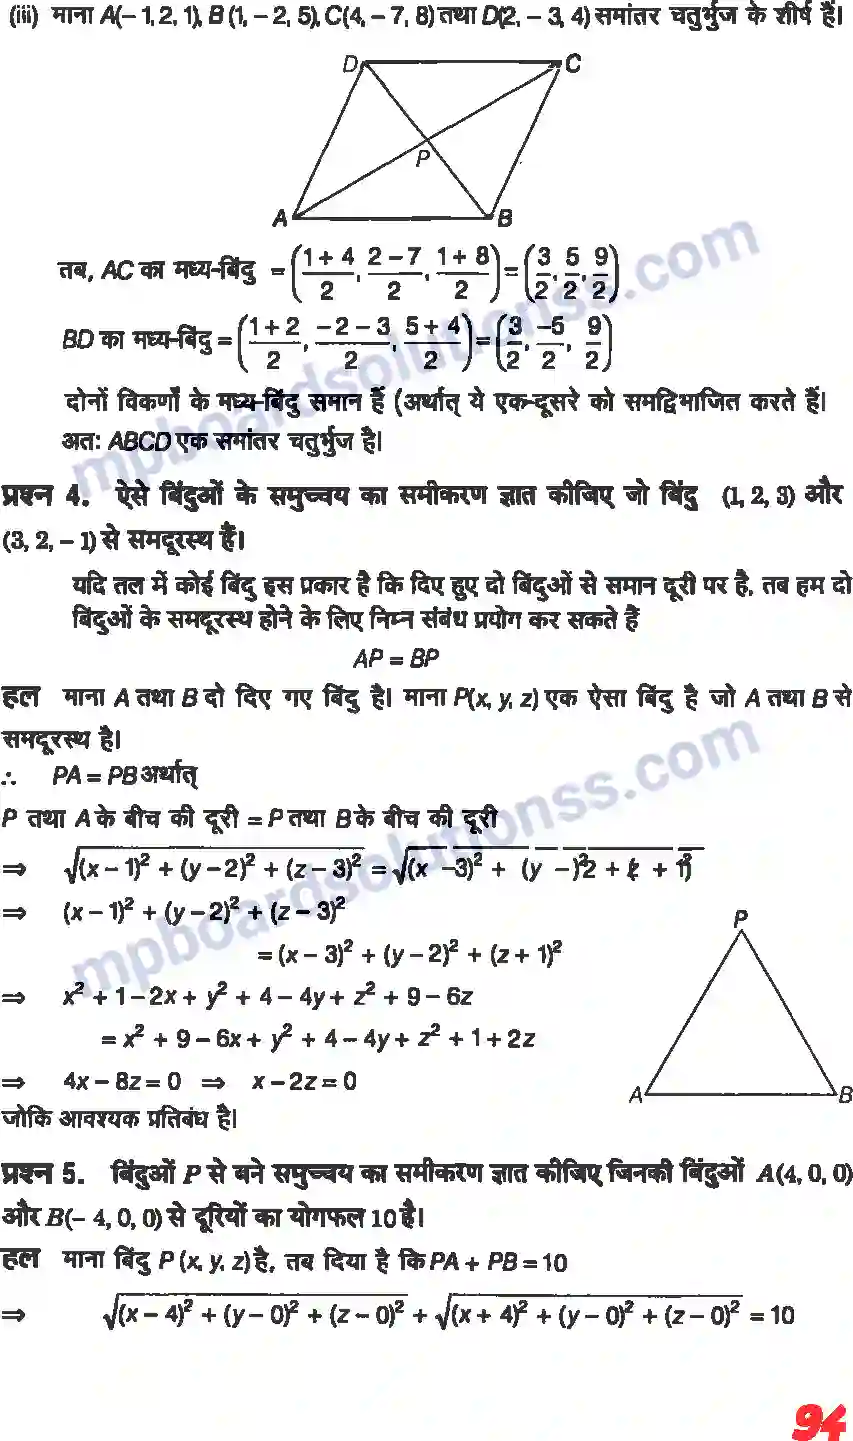 (iii) माना A(– 1, 2, 1), B (1, – 2, 5), C(4, – 7, 8) तथा D(2, – 3, 4) समांतर चतुर्भुज के शीर्ष हैं।
D C
P
A B
तब, AC का मध्य-बिंदु = ((1 + 4)/2, (2 – 7)/2, (1 + 8)/2) = (3/2, 5/2, 9/2)
BD का मध्य-बिंदु = ((1 + 2)/2, (– 2 – 3)/2, (5 + 4)/2) = (3/2, –5/2, 9/2)
दोनों विकर्णों के मध्य-बिंदु समान हैं (अर्थात् ये एक-दूसरे को समद्विभाजित करते हैं।
अतः ABCD एक समांतर चतुर्भुज है।
प्रश्न 4. ऐसे बिंदुओं के समुच्चय का समीकरण ज्ञात कीजिए जो बिंदु (1, 2, 3) और
(3, 2, – 1) से समदूरस्थ हैं।
यदि तल में कोई बिंदु इस प्रकार है कि दिए हुए दो बिंदुओं से समान दूरी पर है, तब हम दो
बिंदुओं के समदूरस्थ होने के लिए निम्न संबंध प्रयोग कर सकते हैं
AP = BP
हल माना A तथा B दो दिए गए बिंदु है। माना P(x, y, z) एक ऐसा बिंदु है जो A तथा B से
समदूरस्थ है।
∴ PA = PB अर्थात्
P तथा A के बीच की दूरी = P तथा B के बीच की दूरी
⇒ √(x – 1)² + (y – 2)² + (z – 3)² = √(x –3)² + (y –)²2 + (z + 1)²
⇒ (x – 1)² + (y – 2)² + (z – 3)²
= (x – 3)² + (y – 2)² + (z + 1)²
P
⇒ x² + 1 – 2x + y² + 4 – 4y + z² + 9 – 6z
= x² + 9 – 6x + y² + 4 – 4y + z² + 1 + 2z
⇒ 4x – 8z = 0 ⇒ x – 2z = 0
A B
जोकि आवश्यक प्रतिबंध है।
प्रश्न 5. बिंदुओं P से बने समुच्चय का समीकरण ज्ञात कीजिए जिनकी बिंदुओं A(4, 0, 0)
और B(– 4, 0, 0) से दूरियों का योगफल 10 है।
हल माना बिंदु P (x, y, z) है, तब दिया है कि PA + PB = 10
⇒ √(x – 4)² + (y – 0)² + (z – 0)² + √(x + 4)² + (y – 0)² + (z – 0)² = 10
94
mpboardsolutionss.com
mpboardsolutionss.com